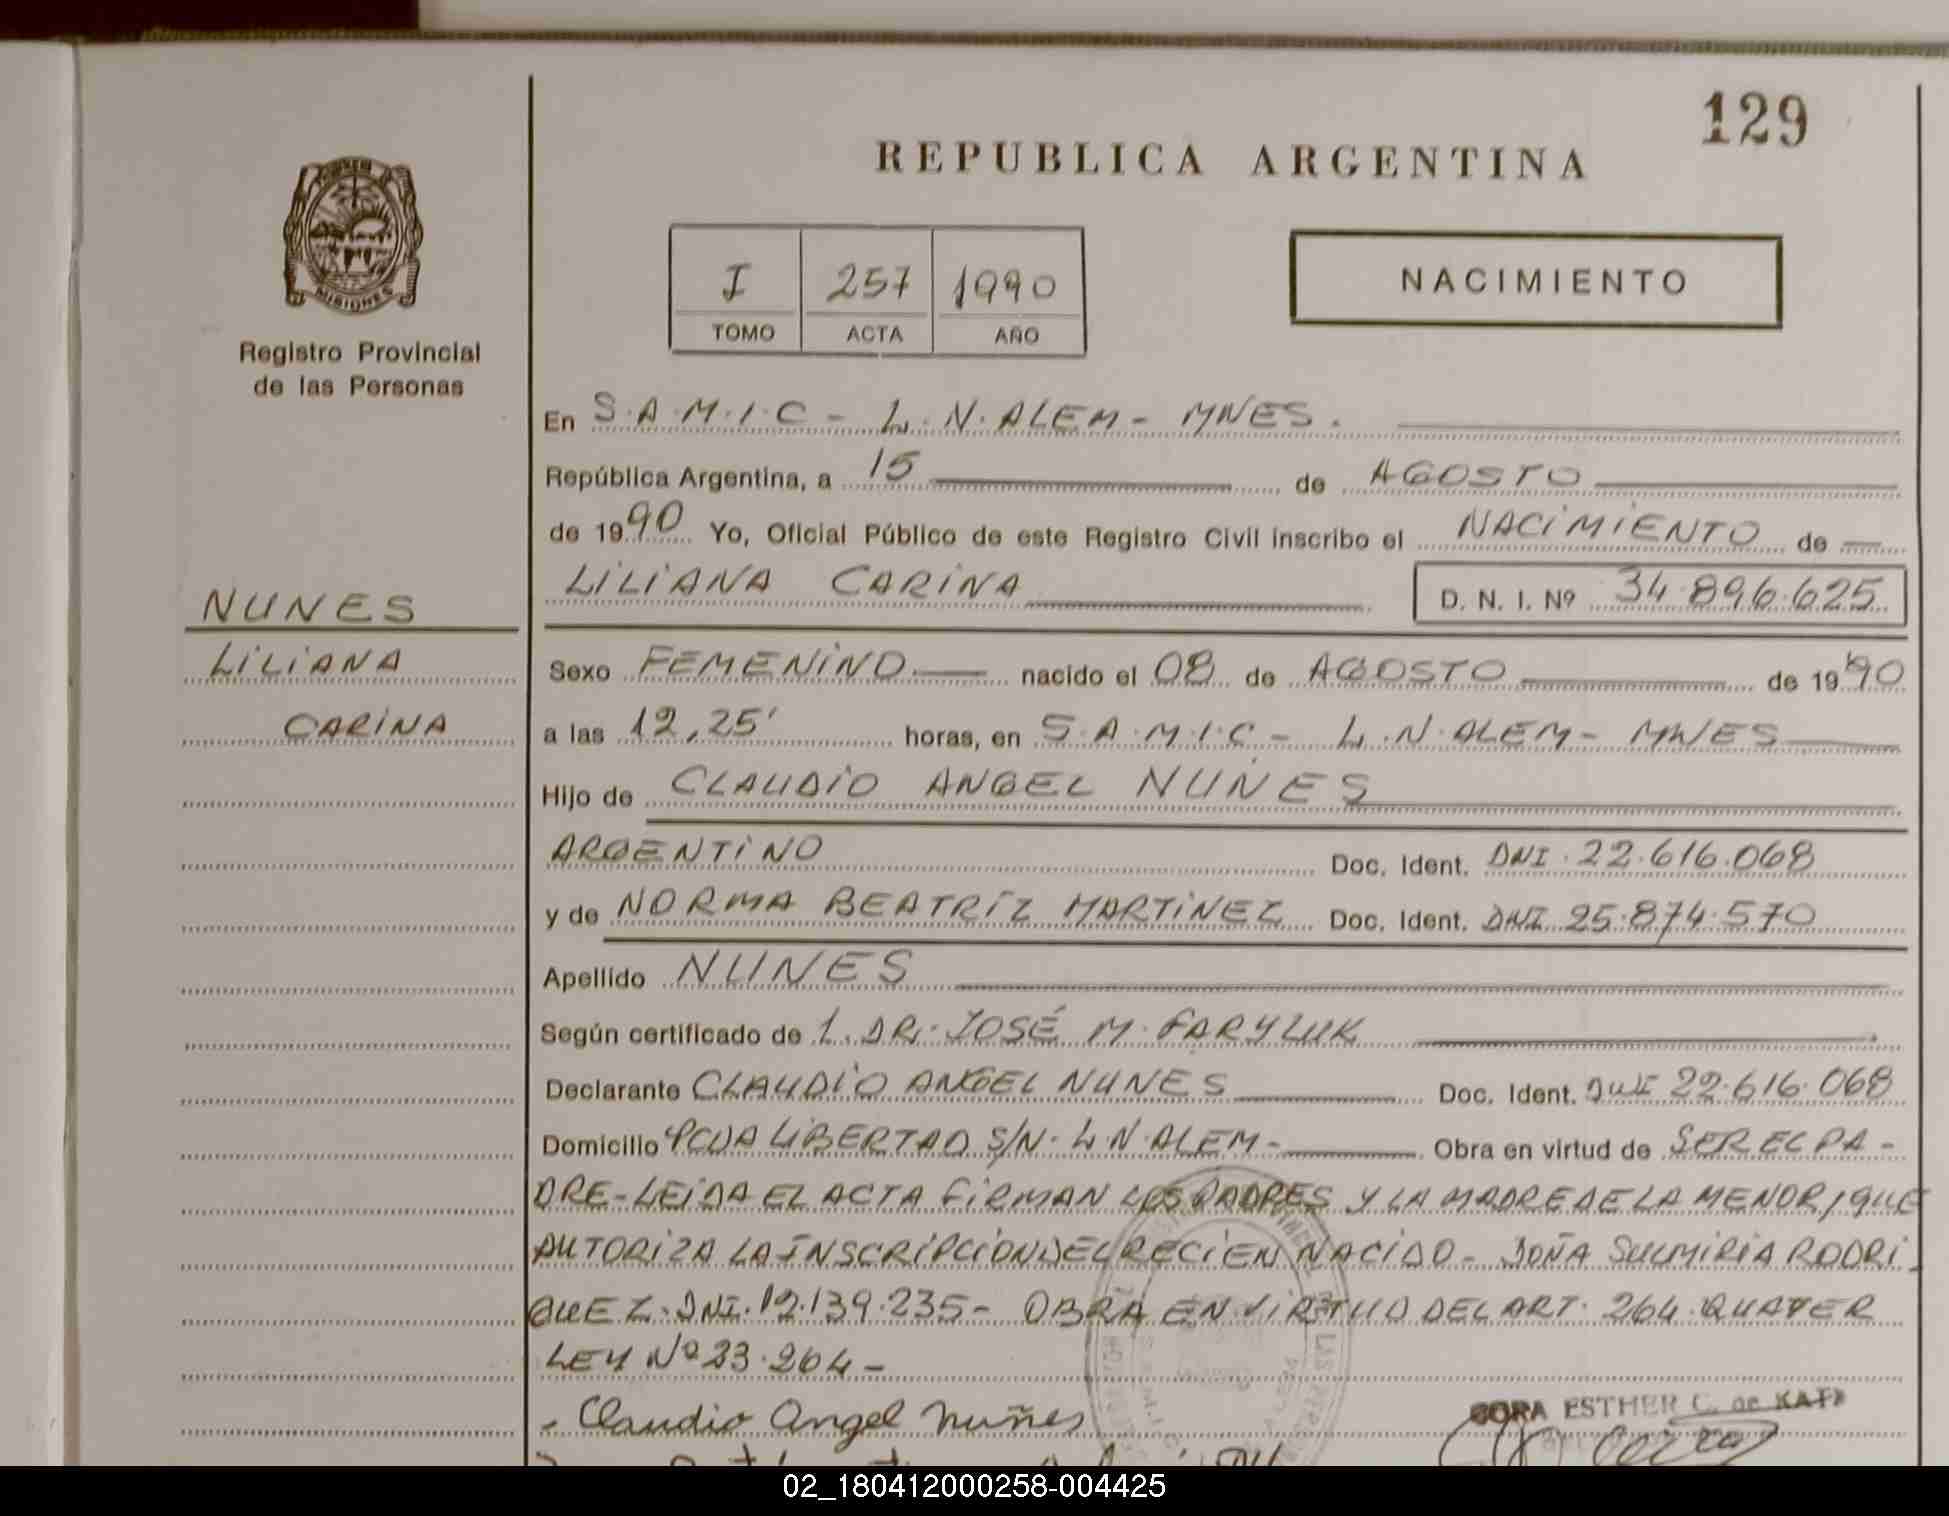 129
REPUBLICA ARGENTINA
MISIONES
Registro Provincial
de las Personas
I 257 1990
TOMO ACTA AÑO
NACIMIENTO
En S.A.M.I.C - L.N.ALEM - MNES.
República Argentina, a 15 de AGOSTO
de 1990 Yo, Oficial Público de este Registro Civil inscribo el NACIMIENTO de
LILIANA CARINA D. N. I. Nº 34.896.625
NUNES
LILIANA
CARINA
Sexo FEMENINO nacido el 08 de AGOSTO de 1990
a las 12,25' horas, en S.A.M.I.C - L.N.ALEM - MNES
Hijo de CLAUDIO ANGEL NUNES
ARGENTINO Doc. Ident. DNI.22.616.068
y de NORMA BEATRÍZ MARTINEZ Doc. Ident. DNI 25.874.570
Apellido NUNES
Según certificado de 1. DR. JOSÉ M. FARYLUK
Declarante CLAUDIO ANGEL NUNES Doc. Ident. DNI 22.616.068
Domicilio PCIA LIBERTAD S/N. L.N.ALEM - Obra en virtud de SER EL PA-
DRE - LEIDA EL ACTA FIRMAN LOS PADRES Y LA MADRE DE LA MENOR, QUE
AUTORIZA LA INSCRIPCION DEL RECIEN NACIDO - DOÑA SULMIRIA RODRI
GUEZ. DNI. 12.139.235 - OBRA EN VIRTUD DEL ART. 264 QUATER
LEY Nº 23.264 -
Claudio Angel Nuñes
CORA ESTHER C. de KATZ
02_180412000258-004425